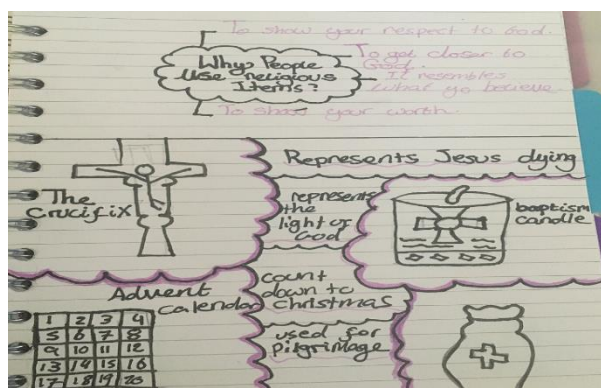 To show your respect to God.
Why People
Use religious
Items?
To get closer to
God.
It resembles
what yo believe.
To show your worth.
The
Crucifix
Represents Jesus dying
represents
the
light of
God
baptism
candle
Advent
calendar
count
down to
Christmas
used for
pilgrimage
1 2 3 4
5 6 7 8
9 10 11 12
13 14 15 16
17 18 19 20